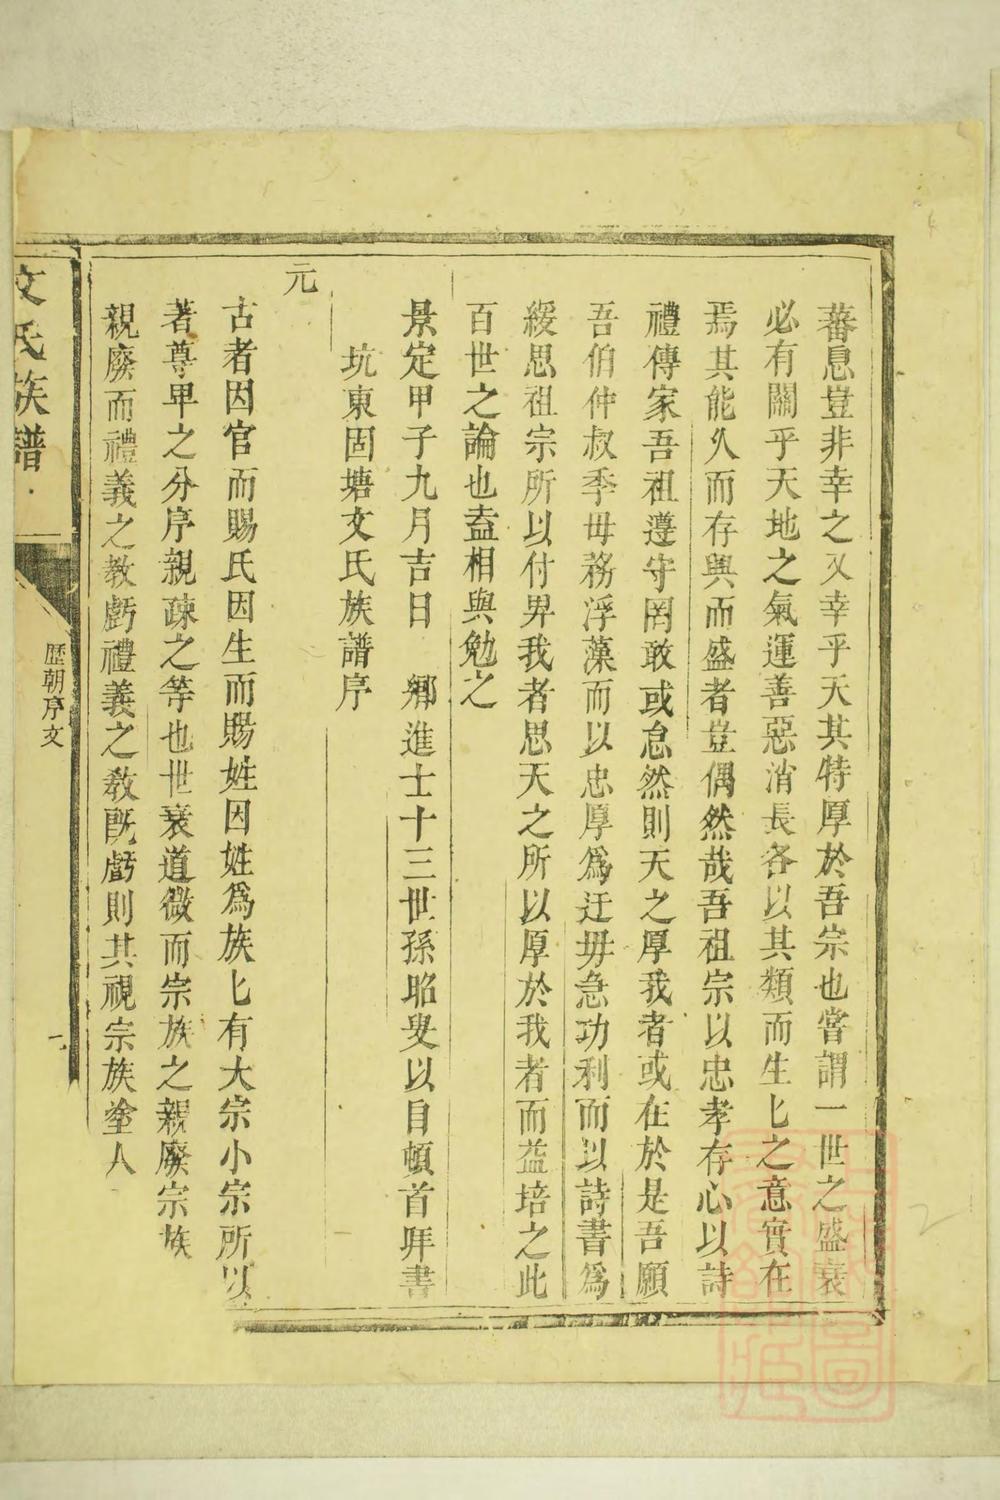 蕃息豈非幸之又幸乎天其特厚於吾宗也嘗謂一世之盛衰
必有關乎天地之氣運善惡消長各以其類而生匕之意實在
焉其能久而存與而盛者豈偶然哉吾祖宗以忠孝存心以詩
禮傳家吾祖遵守罔敢或怠然則天之厚我者或在於是吾願
吾伯仲叔季毋務浮藻而以忠厚爲迂毋急功利而以詩書爲
緩思祖宗所以付畀我者思天之所以厚於我者而益培之此
百世之論也盍相與勉之
景定甲子九月吉日 鄉進士十三世孫昭叟以自頓首拜書
坑東固塘文氏族譜序
元
古者因官而賜氏因生而賜姓因姓爲族匕有大宗小宗所以
著尊卑之分序親疎之等也世衰道微而宗族之親廢宗族
親廢而禮義之教虧禮義之教既虧則其視宗族塗人
文氏族譜
歷朝序文
一